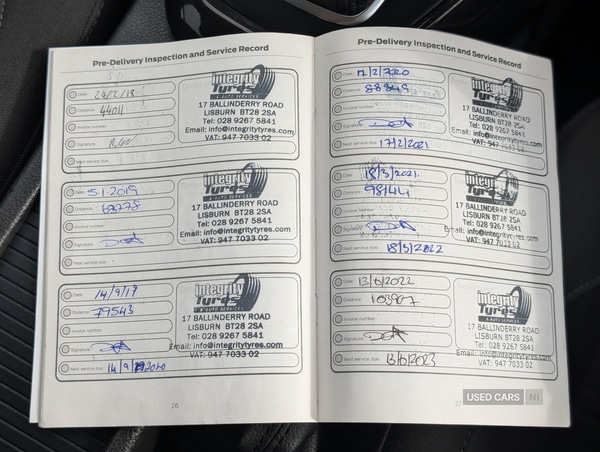 Pre-Delivery Inspection and Service Record
Date: 24/2/18
Distance: 44011
Invoice number
Signature
Next service due:
integrity
Tyres
& AUTO SERVICES
17 BALLINDERRY ROAD
LISBURN BT28 2SA
Tel: 028 9267 5841
Email: info@integritytyres.com
VAT: 947 7033 02
Date: 5.1.2019
Distance: 63778
Invoice number
Signature
Next service due:
integrity
Tyres
& AUTO SERVICES
17 BALLINDERRY ROAD
LISBURN BT28 2SA
Tel: 028 9267 5841
Email: info@integritytyres.com
VAT: 947 7033 02
Date: 14/9/19
Distance: 79543
Invoice number
Signature
Next service due: 14/9/2020
integrity
Tyres
& AUTO SERVICES
17 BALLINDERRY ROAD
LISBURN BT28 2SA
Tel: 028 9267 5841
Email: info@integritytyres.com
VAT: 947 7033 02
26
Pre-Delivery Inspection and Service Record
Date: 17/2/2020
Distance: 88849
Invoice number
Signature
Next service due: 17/2/2021
integrity
Tyres
& AUTO SERVICES
17 BALLINDERRY ROAD
LISBURN BT28 2SA
Tel: 028 9267 5841
Email: info@integritytyres.com
VAT: 947 7033 02
Date: 18/3/2021
Distance: 98144
Invoice number
Signature
Next service due: 18/3/2022
integrity
Tyres
& AUTO SERVICES
17 BALLINDERRY ROAD
LISBURN BT28 2SA
Tel: 028 9267 5841
Email: info@integritytyres.com
VAT: 947 7033 02
Date: 13/6/2022
Distance: 103967
Invoice number
Signature
Next service due: 13/6/2023
integrity
Tyres
& AUTO SERVICES
17 BALLINDERRY ROAD
LISBURN BT28 2SA
Tel: 028 9267 5841
Email: info@integritytyres.com
VAT: 947 7033 02
27
USED CARS NI